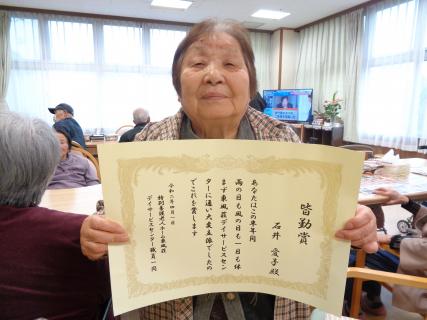 皆勤賞
石井 愛子殿
あなたはこの一年間
雨の日も風の日も一日も休
まず東風荘デイサービスセン
ターに通い大変立派でしたの
でこれを賞します
令和二年四月一日
特別養護老人ホーム東風荘
デイサービスセンター職員一同